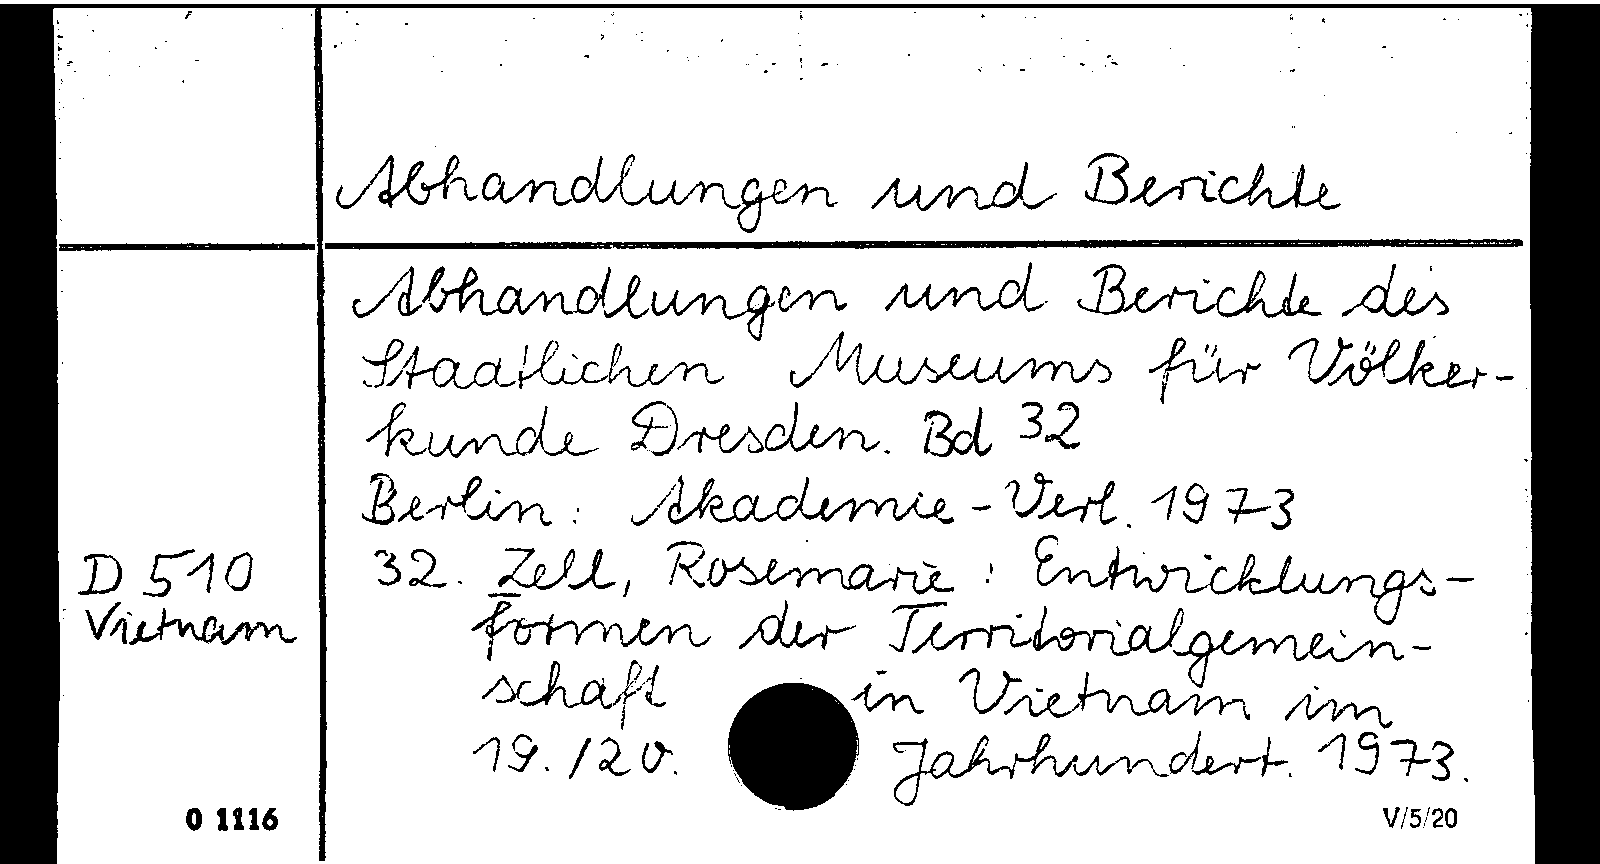 Abhandlungen und Berichte
Abhandlungen und Berichte des
Staatlichen Museums für Völker-
kunde Dresden. Bd 32
Berlin: Akademie-Verl. 1973
D 510
Vietnam
32. Zell, Rosemarie: Entwicklungs-
formen der Territorialgemein-
schaft in Vietnam im
19./20. Jahrhundert. 1973.
O 1116
V/5/20